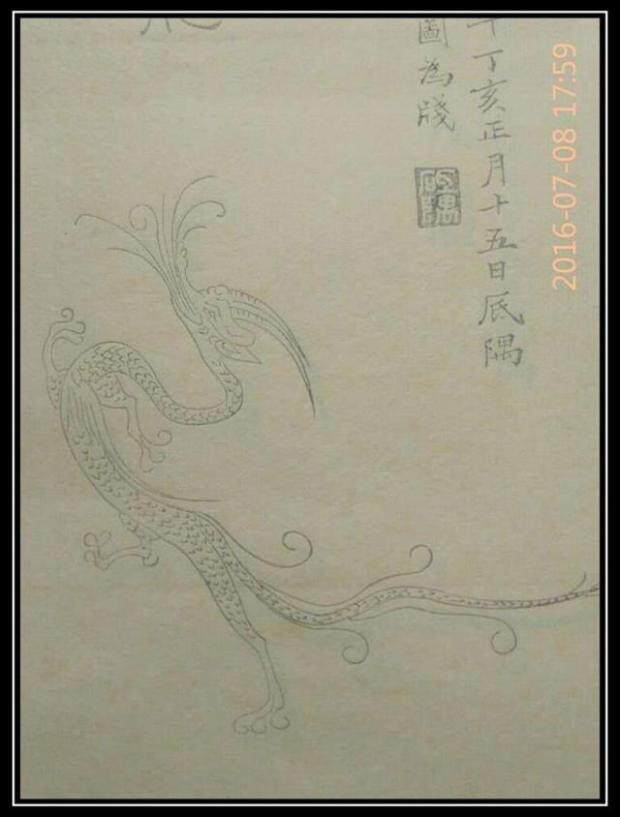 丁亥正月十五日厎隅
圖為牋
2016-07-08 17:59